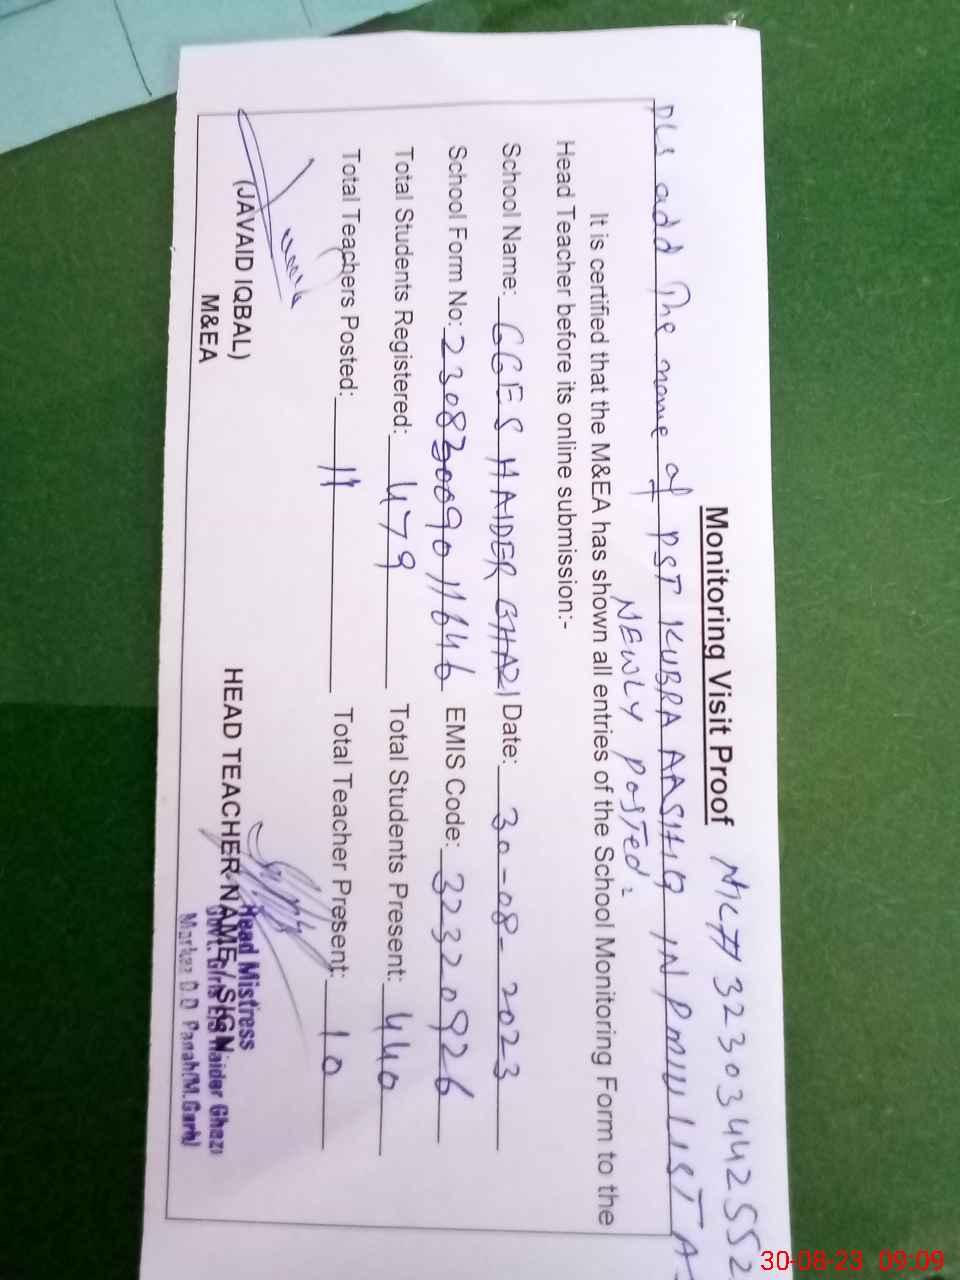 Monitoring Visit Proof
NIC # 3230344 2552
Pls add The name of PST KUBRA AASHIQ IN PMIU LIST As
NEWLY PosTed.
It is certified that the M&EA has shown all entries of the School Monitoring Form to the
Head Teacher before its online submission:-
School Name: GGES HAIDER GHAZI Date: 30-08-2023
School Form No: 230830090 11646 EMIS Code: 32320926
Total Students Registered: 479 Total Students Present: 440
Total Teachers Posted: 11 Total Teacher Present: 10
(JAVAID IQBAL)
M&EA
HEAD TEACHER NAME / SIGN
Head Mistress
Govt. Girls E/S Haider Ghazi
Markaz D.D Panah(M.Garh)
30-08-23 09:09